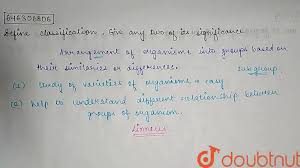 644308806
Define classification. Give any two of its significance
Arrangement of organisms into groups based on
their similarities or differences.
subgroup.
(1) study of varieties of organisms = easy
(2) help to understand different relationship between
groups of organism.
Linnaeus
doubtnut